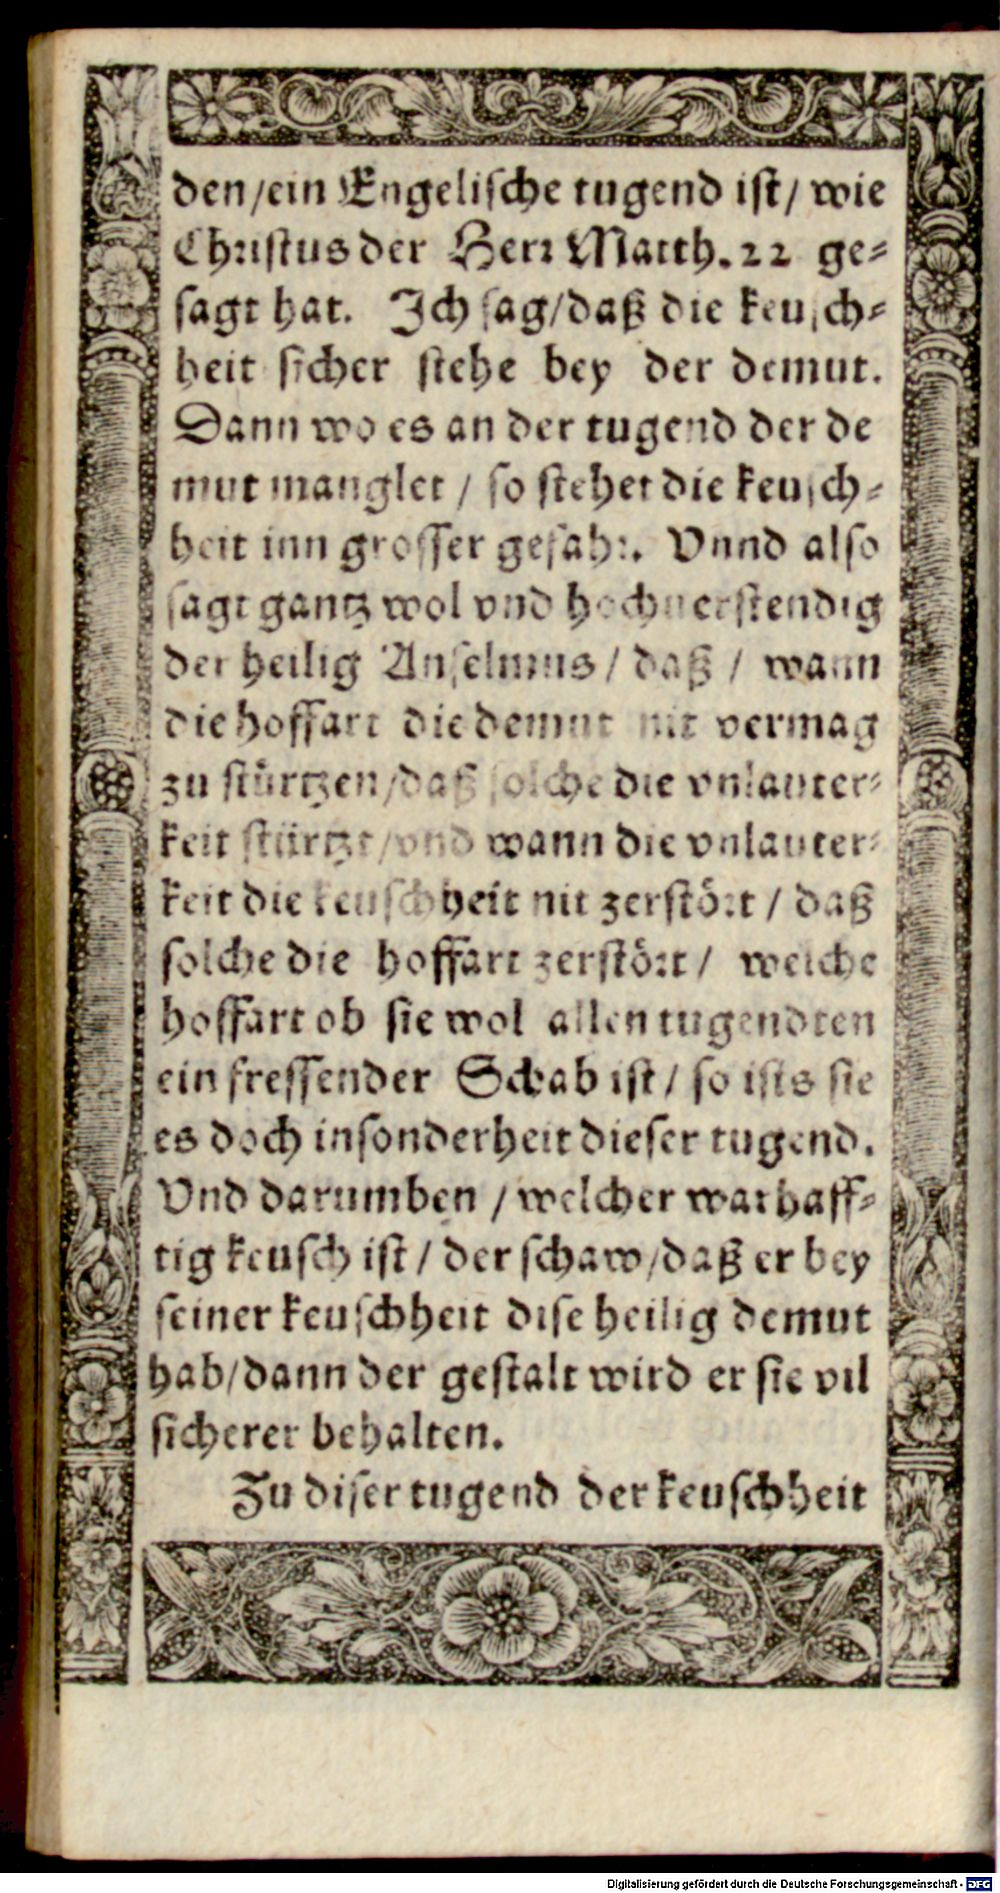 den/ein Engelische tugend ist/ wie
Christus der Herr Matth. 22 ge⸗
sagt hat. Ich sag/daß die keusch⸗
heit sicher stehe bey der demut.
Dann wo es an der tugend der de
mut manglet / so stehet die keusch⸗
heit inn grosser gefahr. Vnnd also
sagt gantz wol vnd hochuerstendig
der heilig Anselmus / daß / wann
die hoffart die demut nit vermag
zu stürtzen/daß solche die vnlauter⸗
keit stürtzt/vnd wann die vnlauter⸗
keit die keuschheit nit zerstört / daß
solche die hoffart zerstört / welche
hoffart ob sie wol allen tugendten
ein fressender Schab ist / so ists sie
es doch insonderheit dieser tugend.
Vnd darumben / welcher warhaff⸗
tig keusch ist / der schaw/daß er bey
seiner keuschheit dise heilig demut
hab/dann der gestalt wird er sie vil
sicherer behalten.
Zu diser tugend der keuschheit
Digitalisierung gefördert durch die Deutsche Forschungsgemeinschaft - DFG